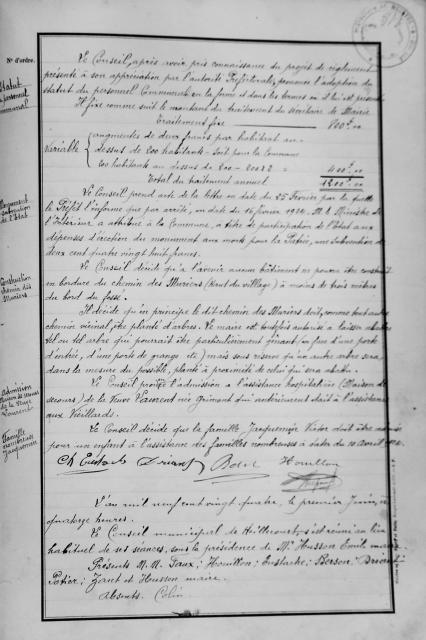 Nos d'ordre.
Le Conseil, après avoir pris connaissance du projet de règlement
présenté à son appréciation par l'autorité Préfectorale, prononce l'adoption du
Statut du personnel Communal en la forme et dans les termes où il lui est présenté
Il fixe comme suit le montant du traitement du Secrétaire de Mairie
Statut
du personnel
communal
Traitement fixe 800f,00
Variable
augmentés de deux francs par habitant au-
dessus de 200 habitants - Soit pour la Commune
200 habitants au dessus de 200 - 200 x 2 = 400f,00
Total du traitement annuel 1200f,00
Le Conseil prend acte de la lettre en date du 25 Février par laquelle
le Préfet l'informe que par arrêté, en date du 15 février 1924, M. le Ministre de
l'Intérieur a attribué à la Commune, à titre de participation de l'Etat aux
dépenses d'érection du monument aux morts pour la Patrie, une Subvention de
deux cent quatre vingt huit francs.
Monument
subvention
de l'Etat
Le Conseil décide qu'à l'avenir aucun bâtiment ne pourra être construit
en bordure du chemin des Mariers (Haut du village) à moins de trois mètres
du bord du fossé.
Construction
chemin des
Mariers
Il décide qu'en principe le dit chemin des Mariers doit, comme tout autre
chemin vicinal, être planté d'arbres. Le maire est toutefois autorisé à laisser abattre
tel ou tel arbre qui pourrait être particulièrement gênant, (en face d'une porte
d'entrée, d'une porte de grange etc) mais sous réserve qu'un autre arbre sera,
dans la mesure du possible, planté à proximité de celui qui sera abattu.
Le Conseil l'admission à l'assistance hospitalière (Maison de
secours) de la Veuve Laurent née qui antérieurement était à l'assistance
aux Vieillards.
Admission
Maison de secours
de la Veuve
Laurent
Le Conseil décide que la famille Jacquemin Victor doit être admise
pour un enfant à l'assistance des familles nombreuses à dater du 10 avril 1924.
Famille
nombreuse
Jacquemin
Ch Eustache Briant Houillon
L'an mil neuf cent vingt quatre, le premier Juin, à
quatorze heures.
Le Conseil municipal de s'est réuni au lieu
habituel de ses séances, sous la présidence de Mr Husson Emile maire.
Présents M.M. Faux; Houillon; Eustache; Berson;
Potier; et Husson maire.
Absents. Colin